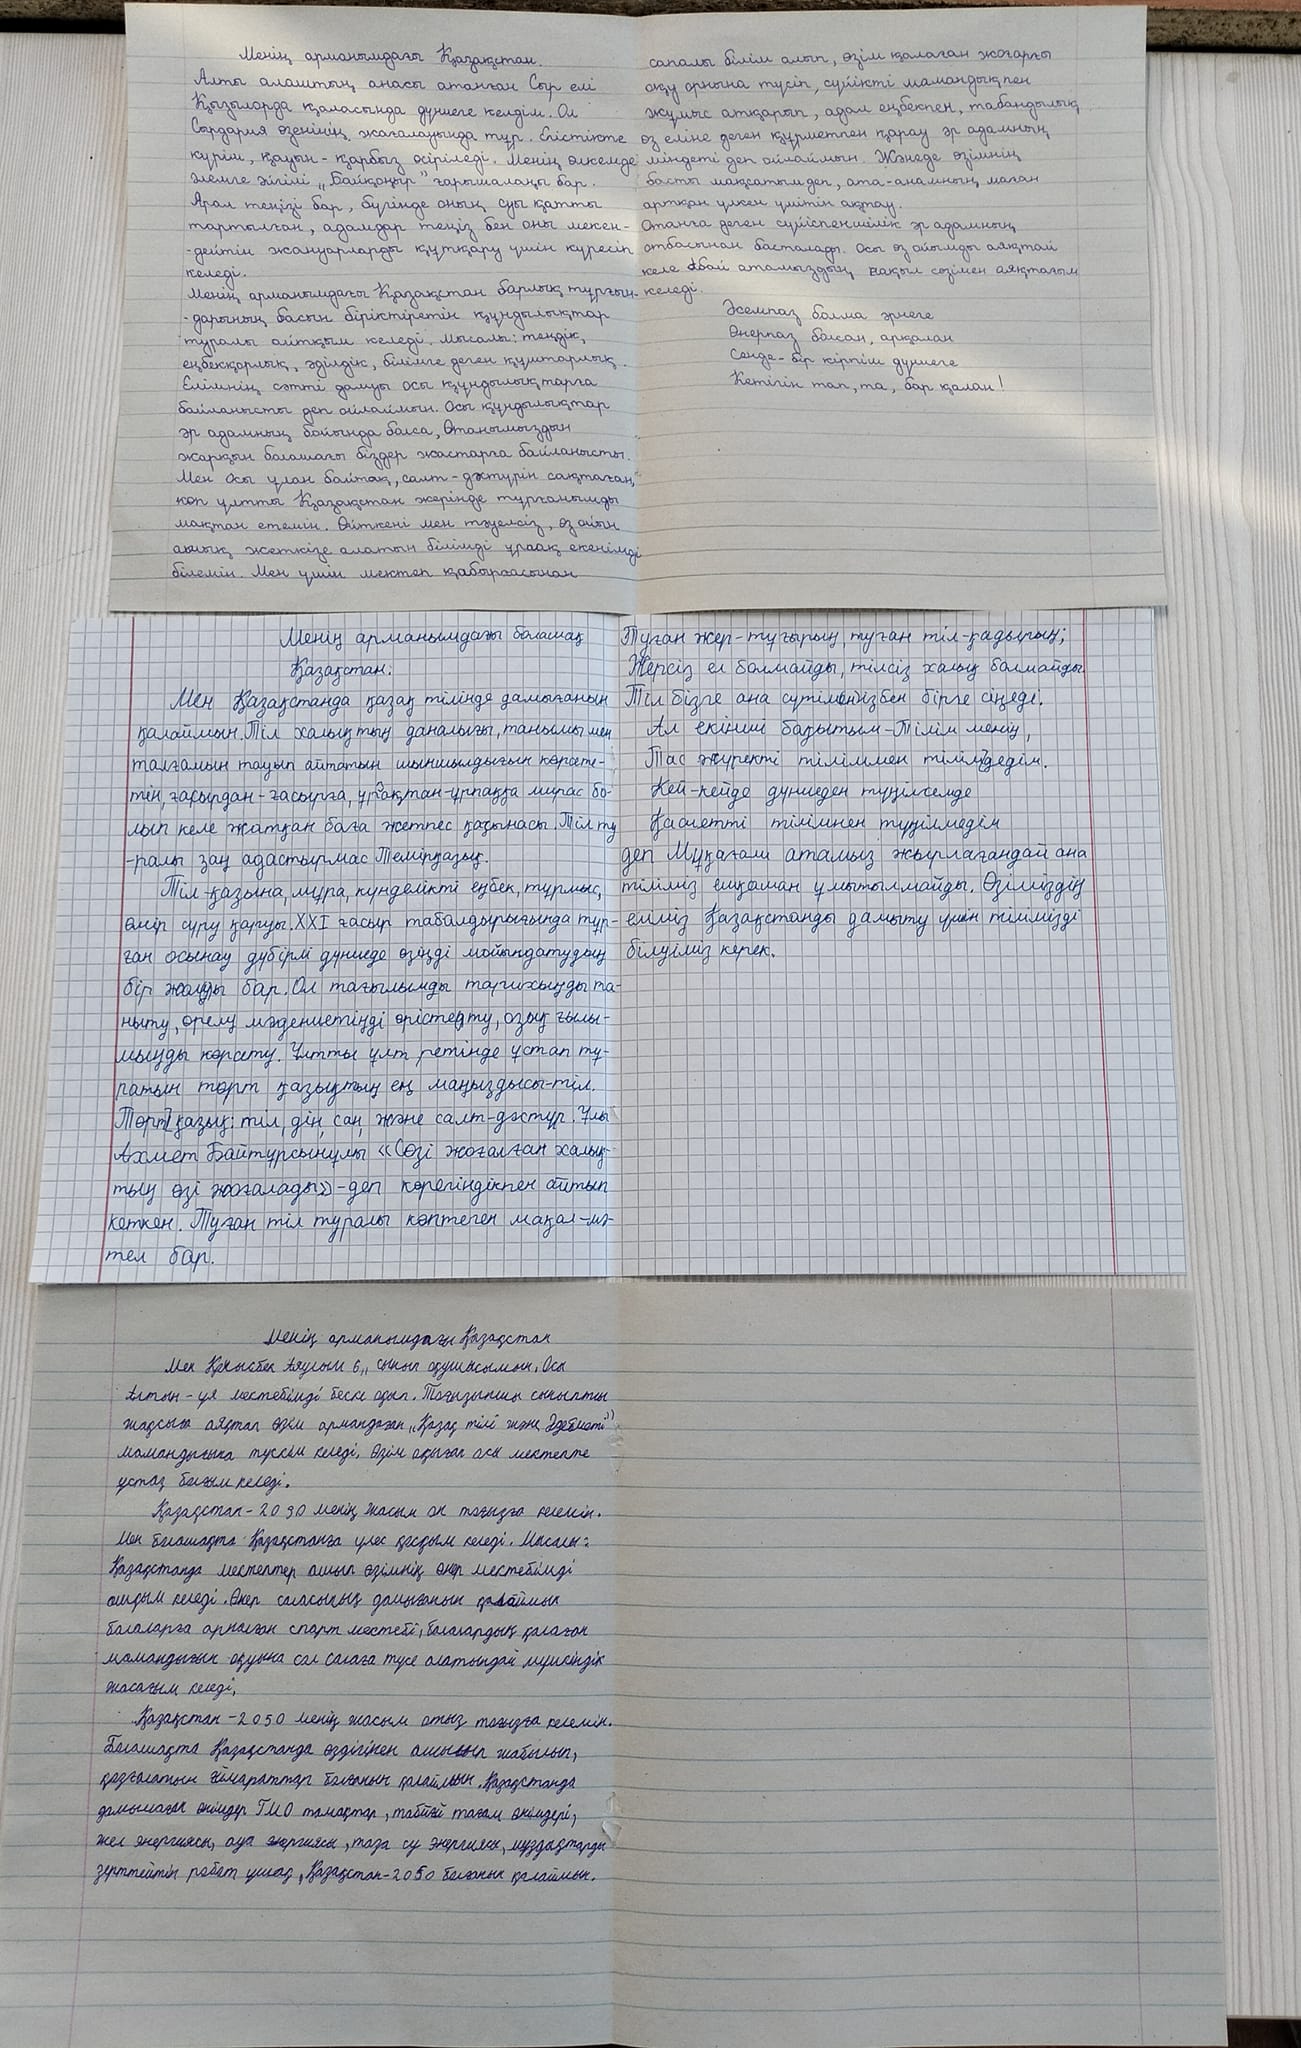 Менің арманымдағы Қазақстан.
Алты алаштың анасы атанған Сыр елі
Қызылорда қаласында дүниеге келдім. Ол
Сырдария өзенінің жағалауында тұр. Егістікте
күріш, қауын-қарбыз өсіріледі. Менің өлкемде
әлемге әйгілі „Байқоңыр" ғарышалаңы бар.
Арал теңізі бар, бүгінде оның суы қатты
тартылған, адамдар теңіз бен оны мекен-
-дейтін жануарларды құтқару үшін күресіп
келеді.
Менің арманымдағы Қазақстан барлық тұрғын-
-дарының басын біріктіретін құндылықтар
туралы айтқым келеді. Мысалы: теңдік,
еңбекқорлық, әділдік, білімге деген құштарлық.
Елімнің сәтті дамуы осы құндылықтарға
байланысты деп ойлаймын. Осы құндылықтар
әр адамның бойында болса, Отанымыздың
жарқын болашағы біздер жастарға байланысты.
Мен осы ұлан байтақ, салт-дәстүрін сақтаған,
көп ұлтты Қазақстан жерінде тұрғанымды
мақтан етемін. Өйткені мен тәуелсіз, өз ойын
ашық жеткізе алатын білімді ұрпақ екенімді
білемін. Мен үшін мектеп қабырғасынан
сапалы білім алып, өзім қалаған жоғарғы
оқу орнына түсіп, сүйікті мамандықпен
жұмыс атқарып, адал еңбекпен, табандылық
өз еліне деген құрметпен қарау әр адамның
міндеті деп ойлаймын. Жәнеде өзімнің
басты мақсатым деп, ата-анамның маған
артқан үлкен үмітін ақтау.
Отанға деген сүйіспеншілік әр адамның
отбасынан басталады. Осы өз ойымды аяқтай
келе Абай атамыздың нақыл сөзімен аяқтағым
келеді.
Әсемпаз болма әрнеге
Өнерпаз болсаң, арқалан
Сенде-бір кірпіш дүниеге
Кетігін тап, та, бар қалан!
Менің арманымдағы болашақ
Қазақстан.
Мен Қазақстанда қазақ тілінде дамығанын
қалаймын. Тіл халықтың даналығы, танымы мен
талғамын тауып айтатын шыншылдығын көрсете-
тін, ғасырдан-ғасырға, ұрпақтан-ұрпаққа мирас бо-
лып келе жатқан баға жетпес қазынасы. Тіл ту
-ралы заң адастырмас Темірқазық.
Тіл-қазына, мұра, күнделікті еңбек, тұрмыс,
өмір сүру қаруы. XXI ғасыр табалдырығында тұр-
ған осынау дүбірлі дүниеде өзіңді мойындатудың
бір жолы бар. Ол тағылымды тарихыңды та-
ныту, өрелу мәдениетіңді өрістету, озық ғылы-
мыңды көрсету. Ұлтты ұлт ретінде ұстап тұ-
ратын төрт қазықтың ең маңыздысы-тіл.
Төрт қазық: тіл, дін, сан, және салт-дәстүр. Ұлы
Ахмет Байтұрсынұлы «Сөзі жоғалған халық-
тың өзі жоғалады»-деп көрегіндікпен айтып
кеткен. Туған тіл туралы көптеген мақал-мә-
тел бар.
Туған жер-тұғырың, туған тіл-қадырың;
Жерсіз ел болмайды, тілсіз халық болмайды.
Тіл бізге ана сүтімізбен бірге сіңеді.
Ал екінші бақытым-Тілім менің,
Тас жүректі тіліммен тілімдедім.
Кей-кейде дүниеден түңілсемде
Қасиетті тілімнен түңілмедім
деп Мұқағали атамыз жырлағандай ана
тіліміз ешқашан ұмытылмайды. Өзіміздің
еліміз Қазақстанды дамыту үшін тілімізді
білуіміз керек.
Менің арманымдағы Қазақстан
Мен Аяулым 6„ сынып оқушысымын. Осы
Алтын-ұя мектебімді беске оқып. Тоғызыншы сыныпты
жақсыға аяқтап өзім армандаған „Қазақ тілі және Әдебиеті"
мамандығына түскім келеді. Өзім оқыған осы мектепте
ұстаз болғым келеді.
Қазақстан-2030 менің жасым он тоғызға келемін.
Мен болашақта Қазақстанға үлес қосқым келеді. Мысалы:
Қазақстанда мектептер ашып өзімнің өнер мектебімді
ашқым келеді. Өнер саласының дамығанын қалаймын
балаларға арналған спорт мектебі, балалардың қалаған
мамандығын оқуына сол салаға түсе алатындай мүмкіндік
жасағым келеді.
Қазақстан-2050 менің жасым отыз тоғызға келемін.
Болашақта Қазақстанда өздігінен ашылып жабылып,
қозғалатын ғимараттар болғанын қалаймын. Қазақстанда
дамымаған өнімдер ГМО тамақтар, табиғи тағам өнімдері,
жел энергиясы, ауа энергиясы, таза су энергиясы, мұздықтарды
зерттейтін робот ұшақ, Қазақстан-2050 болғанын қалаймын.